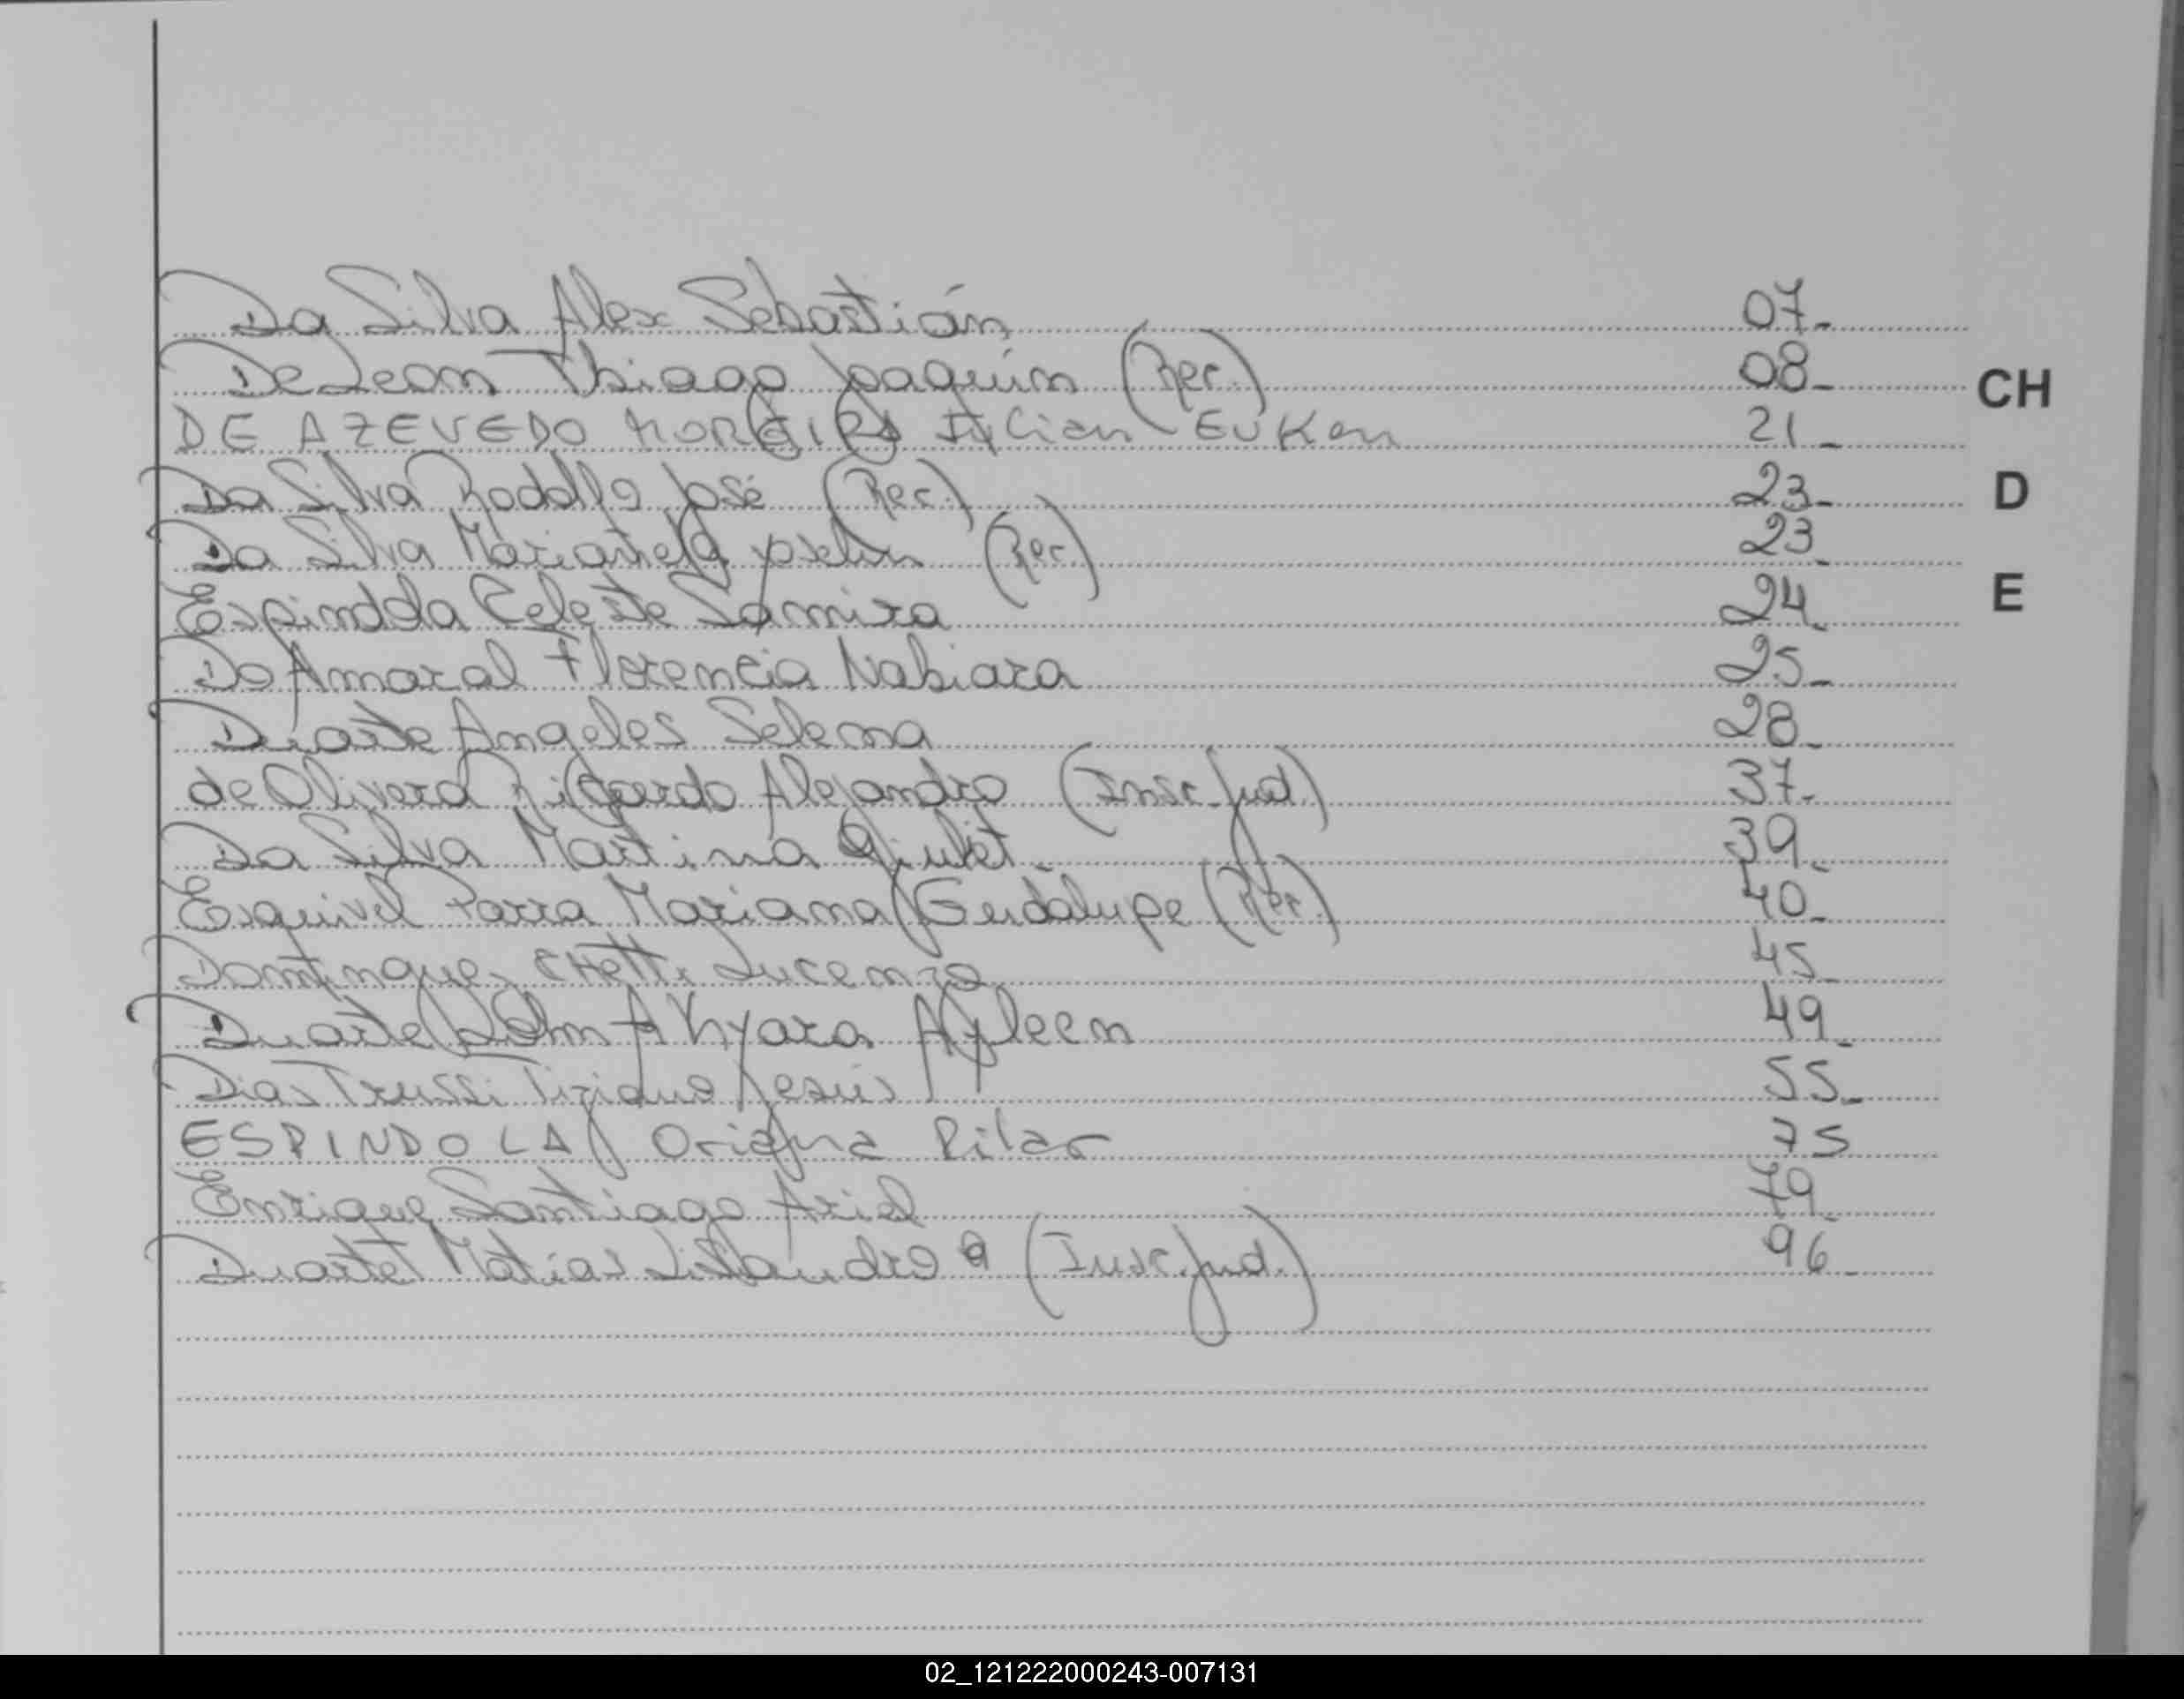 Da Silva Alex Sebastián 07-
De Leon Thiago Joaquín (Rec.) 08- CH
DE AZEVEDO MOREIRA Julian Euken 21-
Da Silva Rodolfo José (Rec.) 23- D
Da Silva Marianela (Rec) 23-
Espindola Celeste Samira 24- E
Do Amaral Florencia Nabiara 25-
Duarte Angeles Selena 28-
de Olivera Ricardo Alejandro (Insc. Jud.) 37-
Da Silva Martina Giulet 39-
Esquivel Parra Mariana Guadalupe (Rec.) 40-
Domínguez Lucenzo 45-
Duarte Kyara Ayleen 49-
Dias Trussi Tiziano Jesús 55-
ESPINDOLA Oriana Pilar 75
Enrique Santiago Ariel 79-
Duarte Matias Lisandro (Insc. Jud.) 96-
02_121222000243-007131